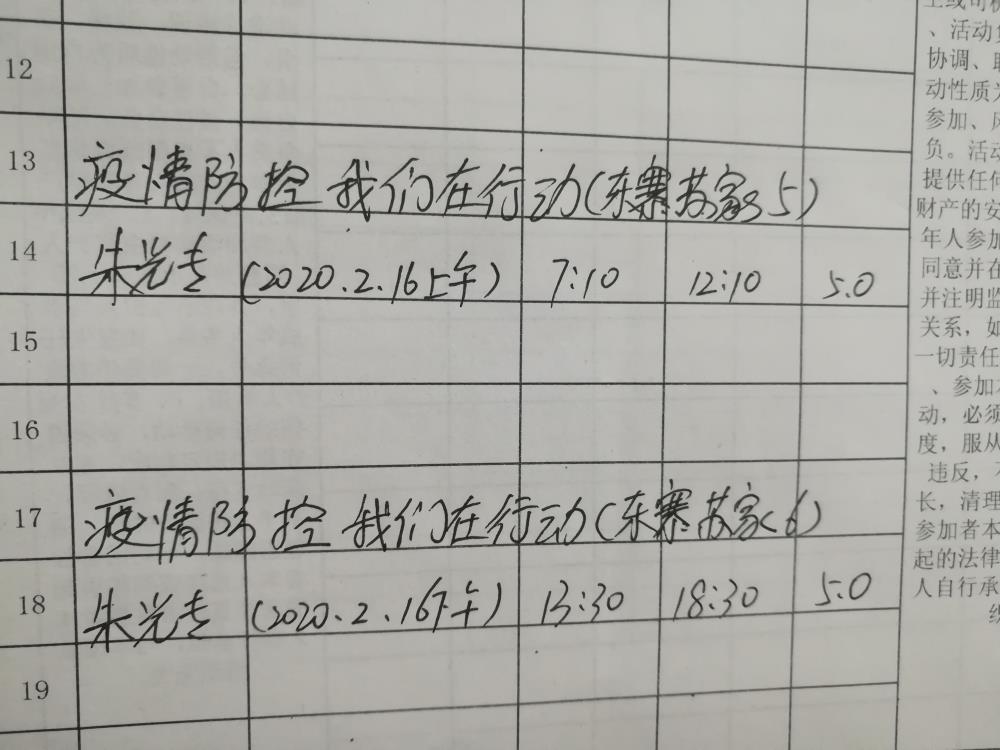 12
13 疫情防控 我们在行动(东寨苏家 5)
14 朱光专 (2020.2.16上午) 7:10 12:10 5.0
15
16
17 疫情防控 我们在行动(东寨苏家 6)
18 朱光专 (2020.2.16下午) 13:30 18:30 5.0
19
、活动
协调、
动性质
参加、
负。活动
提供任何
财产的安
年人参加
同意并在
并注明监
关系,如
一切责任
、参加
动,必须
度,服从
违反,
长,清理
参加者本
起的法律
人自行承